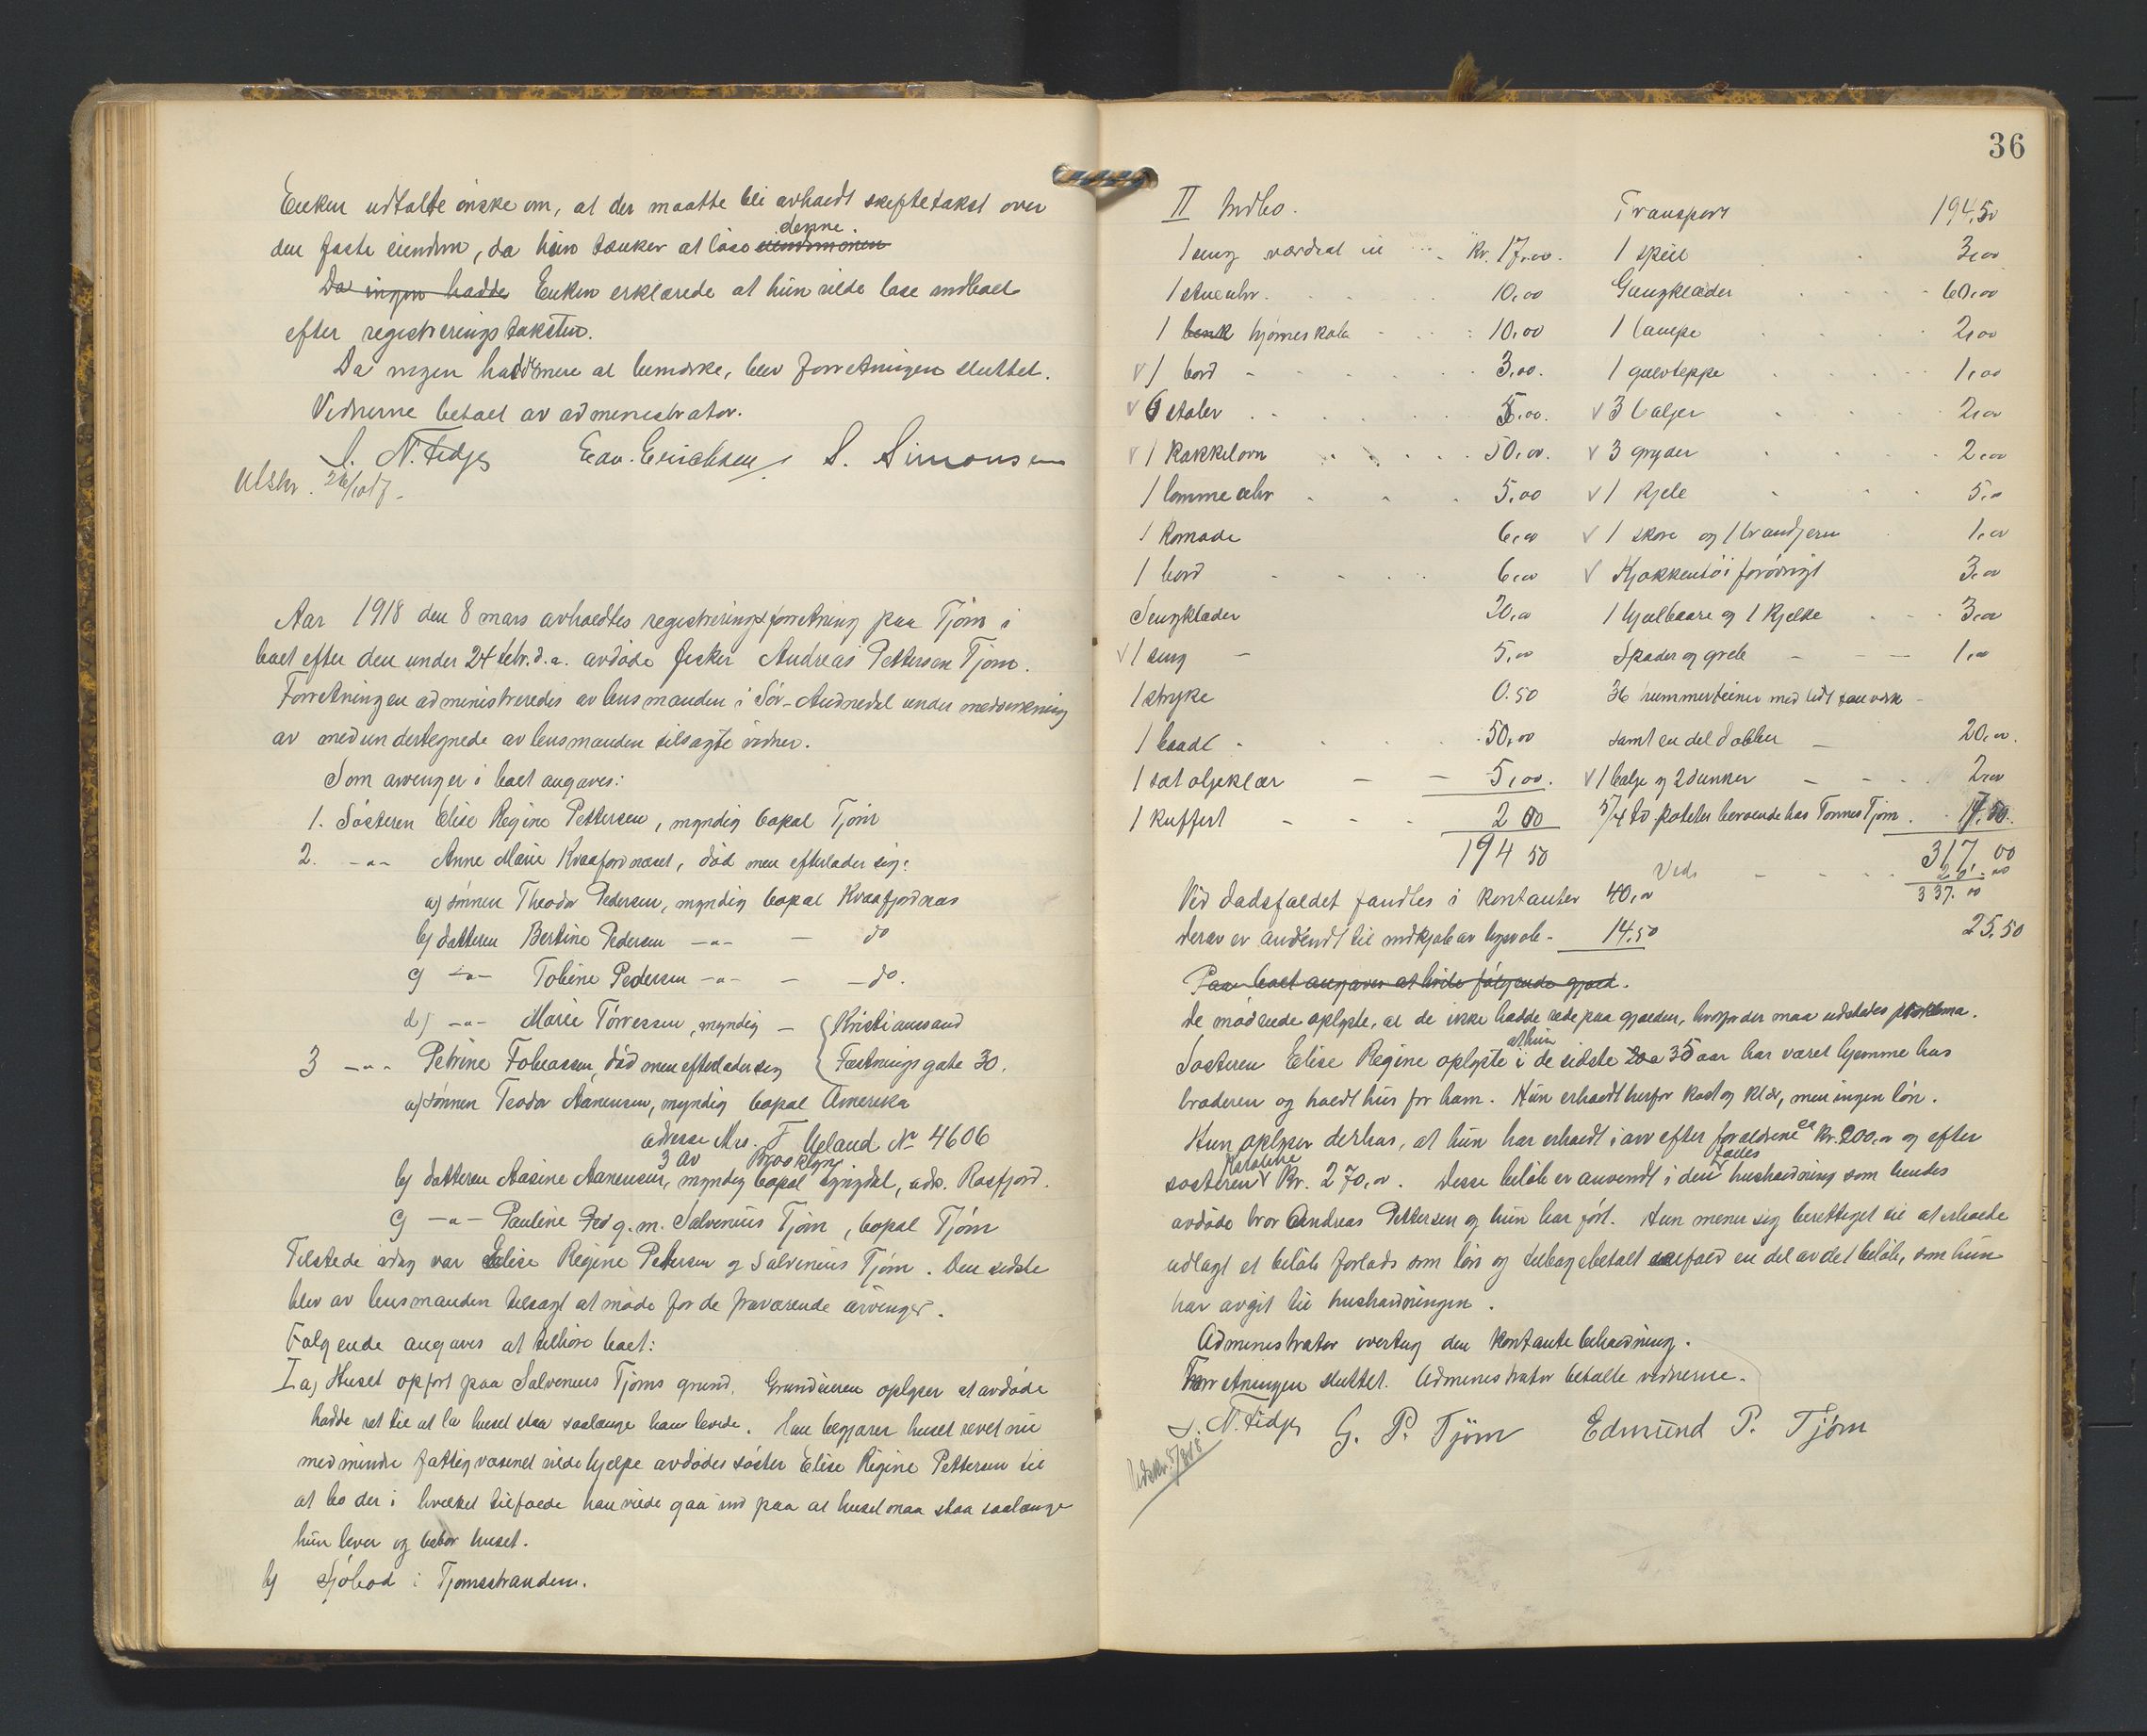 Enken udtalte önske om, at der maatte bli avholdt skiftetakst over
den faste eiendom, da hun tænker at löse denne. eiendommen
Da ingen hadde Enken erklærede at hun vilde löse indboet
efter registreringstaksten.
Da ingen hadde mere at bemerke, blev forretningen sluttet.
Vidnerne betalt av administrator.
S. N. Fidje S. Simonsen
Utskr. 26/10 17.
Aar 1918 den 8 mars avholdtes registreringsforretning paa Tjöm i
boet efter den under 24 febr. d.a. avdöde fisker Andreas Pettersen Tjöm.
Forretningen administreredes av lensmanden i Sör-Audnedal under medvirkning
av medundertegnede av lensmanden tilsagte vidner.
Som arvinger i boet angaves:
1. Sösteren Elise Regine Pettersen, myndig bopæl Tjöm
2. -"- Anne Marie Kvaafjordnæset, död men efterlader sig:
a) sönnen Theodor Pedersen, myndig bopæl Kvaafjordnæs
b) datteren Bertine Pedersen -"- — do
c) -"- Tobine Pedersen -"- — do.
d) -"- Marie Törressen, myndig — { Kristiansand
3 -"- Petrine Tobiassen, död men efterlader sig { Fæstningsgate 30.
a) sönnen Teodor Aanensen, myndig bopæl Amerika
adresse Mrs. T. Ueland No 4606
3 Av Brooklyn
b) datteren Aasine Aanensen, myndig bopæl Lyngdal, adr. Rosfjord.
c) -"- Pauline g.m. Salvenius Tjöm, bopæl Tjöm
Tilstede idag var Elise Regine Pettersen og Salvenius Tjöm. Den sidste
blev av lensmanden tilsagt at möde for de fraværende arvinger.
Fölgende angaves at tilhöre boet:
I a) Huset opfört paa Salvenius Tjöms grund. Grundeieren oplyser at avdöde
hadde ret til at la huset staa saalænge han levde. Han begjærer huset revet nu
med mindre fattigvæsenet vilde hjelpe avdödes söster Elise Regine Pettersen til
at bo der i hvilket tilfælde han vilde gaa ind paa at huset maa staa saalænge
hun lever og bebor huset.
b) Sjöbod i Tjömsstranden.
36
II Indbo.
1 seng værdsat til kr. 17,00.
1 stueuhr. 10,00
1 benk hjörneskab 10,00
v 1 bord 3,00.
v 6 stoler 5,00.
v 1 kakkelovn 50,00.
1 lommeuhr 5,00
1 komode 6,00
1 bord 6,00
Sengklæder 20,00
v 1 seng 5,00
1 stryke 0.50
1 baad 50,00
1 sæt oljeklær 5,00.
1 kuffert 2 00
194 50
Transport 194,50
1 speil 3,00
Gangklæder 60,00
1 lampe 2,00
1 gulvteppe 1,00
v 3 baljer 2,00
v 3 gryder 2,00
v 1 kjele 5,00
v 1 skore og 1 brandjern 1,00
v Kjökkentöi forövrigt 3,00
1 hjulbaare og 1 kjelke 3,00
Spader og greb 1,00
36 hummerteiner med lidt tauverk
samt en del dobber 20,00.
v 1 balje og 2 dunker 2,00
5/4 td. poteter beroende hos Tönnes Tjöm. 17.50.
317,00
Ved 20,00
337.00
Ved dödsfaldet fandtes i kontanter 40,00
derav er anvendt til indkjöb av 14,50 25,50
Paa boet angaves at hvile fölgende gjæld.
De mödende oplyste, at de ikke hadde rede paa gjælden, hvorfor der maa udstedes proklama.
Sösteren Elise Regine oplyste at hun i de sidste 35 aar har været hjemme hos
broderen og holdt hus for ham. Hun erholdt herfor kost og klær, men ingen lön.
Hun oplyser derhos, at hun har erholdt i arv efter forældrene ca kr. 200,00 og efter
sösteren Karoline kr. 270,00. Disse belöb er anvendt i den fælles husholdning som hendes
avdöde bror Andreas Pettersen og hun har fört. Hun mener sig berettiget til at erholde
udlagt et belöb forlods som lön og tilbagebetalt ialfald en del av det belöb, som hun
har avgit til husholdningen.
Administrator overtog den kontante beholdning.
Forretningen sluttet. Administrator betalte vidnerne.
S. N. Fidje G. P. Tjöm Edmund P. Tjöm